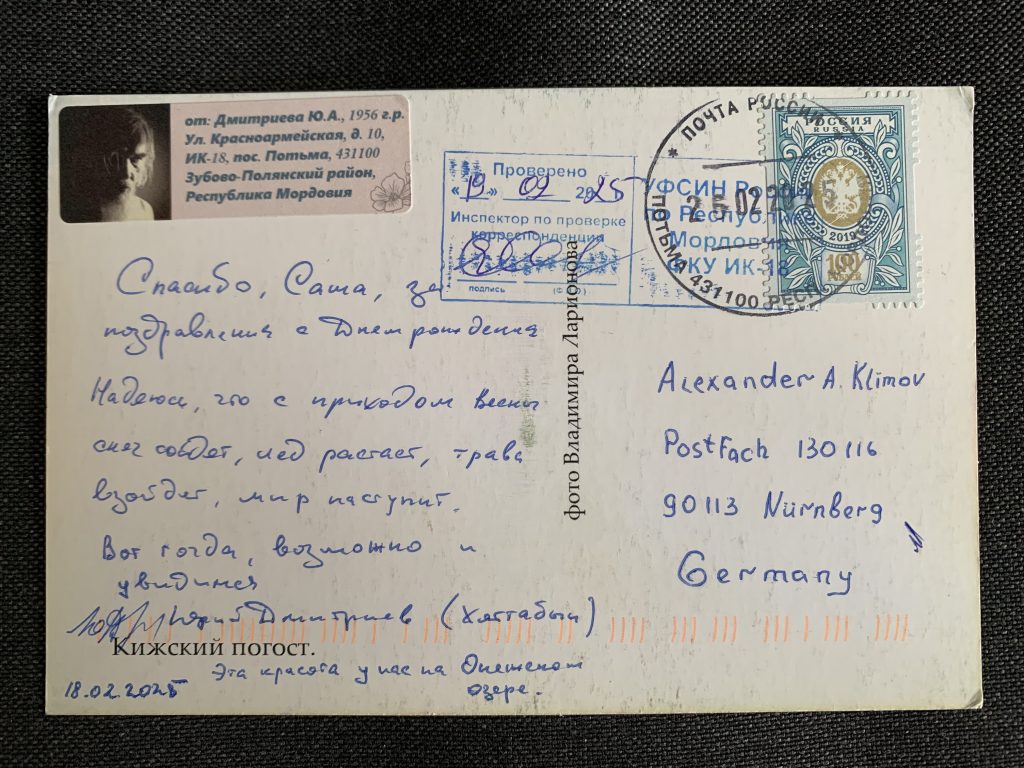 от: Дмитриева Ю.А., 1956 г.р.
Ул. Красноармейская, д. 10,
ИК-18, пос. Потьма, 431100
Зубово-Полянский район,
Республика Мордовия
Проверено
«19» 02 2025
Инспектор по проверке
корреспонденции
подпись (Ф
УФСИН Р
Республ
Мордовия
ФКУ ИК-18
* ПОЧТА РОССИИ
25.02 2025
ПОТЬМА 431100 РЕСП
РОССИЯ
RUSSIA
2019
100
Спасибо, Саша, за
поздравления с Днем рождения
Надеюсь, что с приходом весны
снег сойдет, лед растает, трава
взойдет, мир наступит.
Вот тогда, возможно и
увидимся
Юрий Дмитриев (Хоттабыч)
Кижский погост.
Эта красота у нас на Онежском
озере.
18.02.2025
фото Владимира Ларионова
Alexander A. Klimov
Postfach 130 116
90113 Nürnberg
Germany